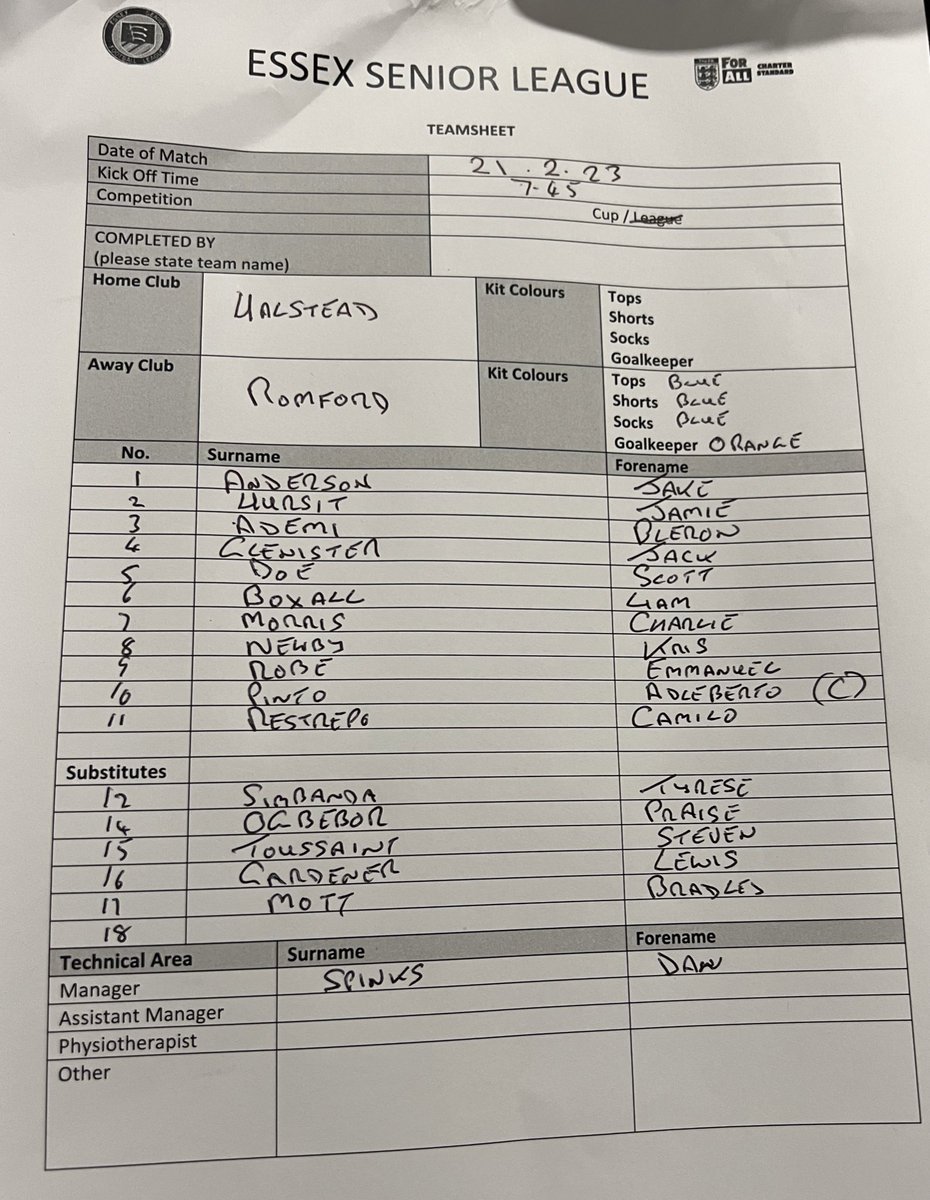 ESSEX SENIOR LEAGUE
FOR ALL CHARTER STANDARD
TEAMSHEET
Date of Match 21.2.23
Kick Off Time 7-45
Competition Cup / League
COMPLETED BY
(please state team name)
Home Club HALSTEAD Kit Colours Tops
Shorts
Socks
Goalkeeper
Away Club ROMFORD Kit Colours Tops BLUE
Shorts BLUE
Socks BLUE
Goalkeeper ORANGE
No. Surname Forename
1 ANDERSON JAKE
2 HURSIT JAMIE
3 ADEMI BLERON
4 GLENISTER JACK
5 DOE SCOTT
6 BOXALL LIAM
7 MORRIS CHARLIE
8 NEWBY KRIS
9 ROBE EMMANUEL
10 PINTO ADLEBERTO (C)
11 RESTREPO CAMILO
Substitutes
12 SIMBANDA TYRESE
14 OGBEBOR PRAISE
15 TOUSSAINT STEVEN
16 GARDENER LEWIS
17 MOTT BRADLEY
18
Technical Area Surname Forename
Manager SPINKS DAN
Assistant Manager
Physiotherapist
Other